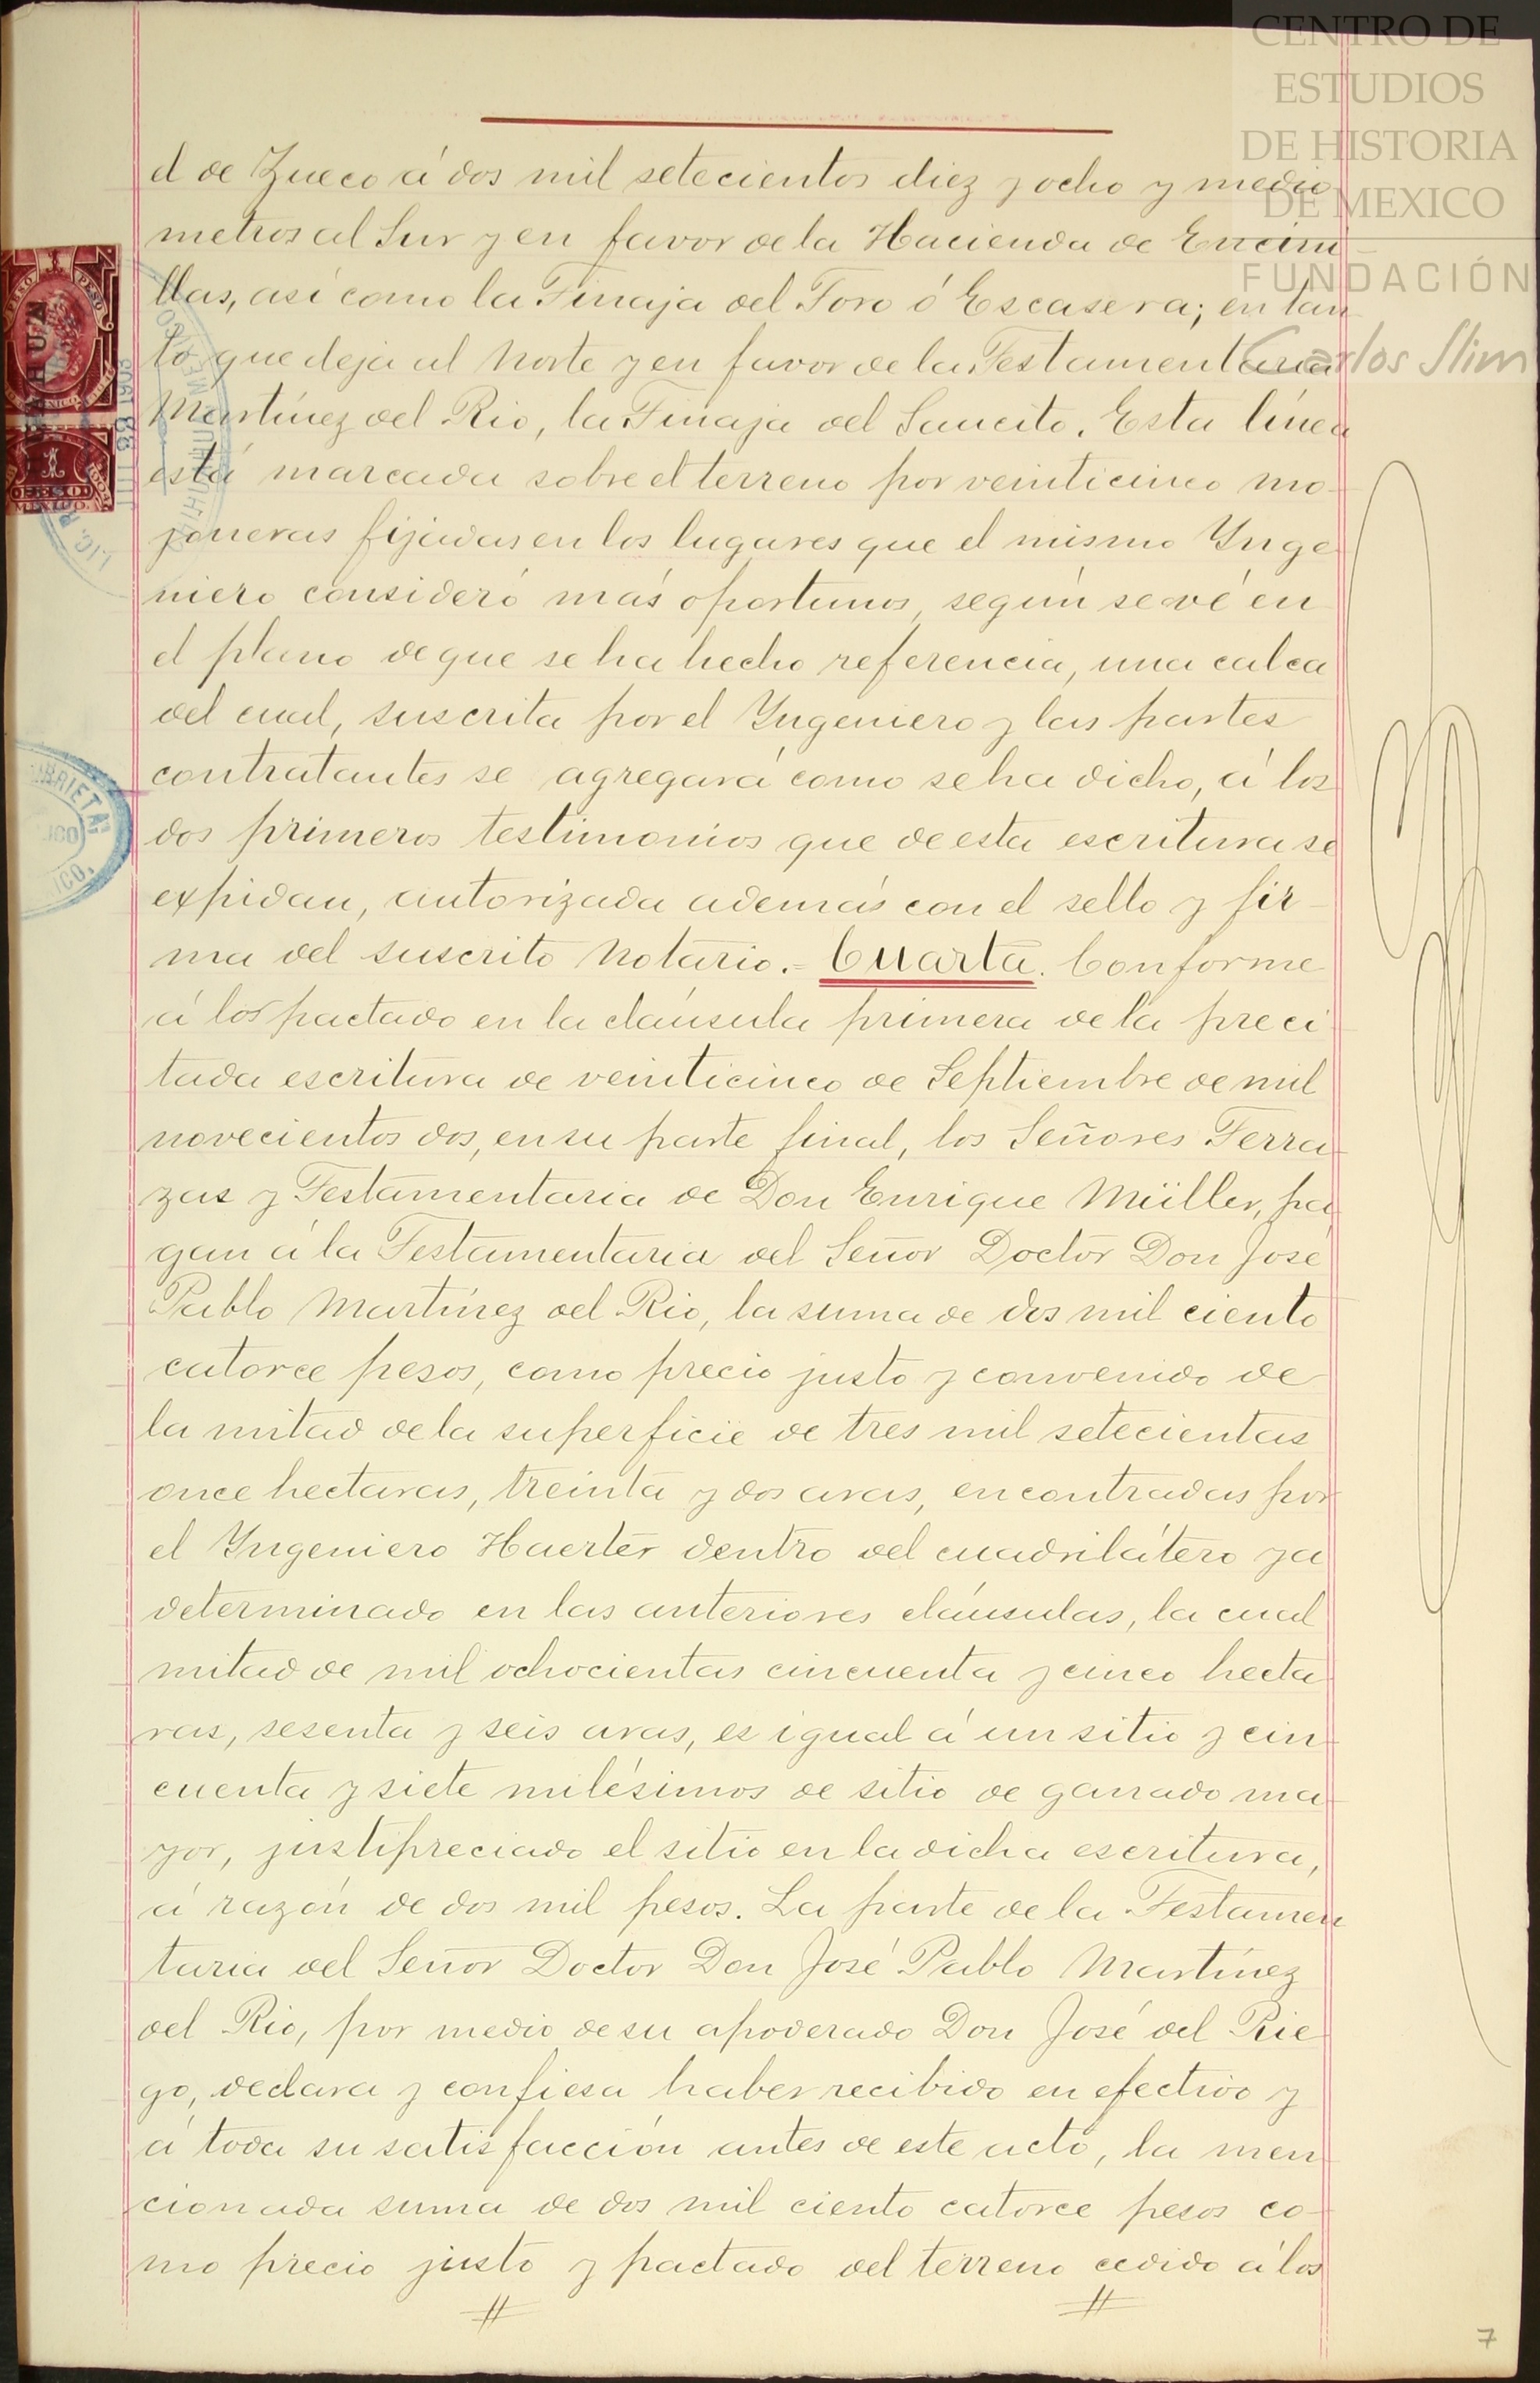 CENTRO DE
ESTUDIOS
DE HISTORIA
DE MEXICO
FUNDACIÓN
Carlos Slim
el de Zueco á dos mil setecientos diez y ocho y medio
metros al Sur y en favor de la Hacienda de Encini
llas, así como la Tinaja del Toro ó Escasera; en tan
to que deja al Norte y en favor de la Testamentaria
Martínez del Rio, la Tinaja del Saucito. Esta línea
está marcada sobre el terreno por veinticinco mo-
joneras fijadas en los lugares que el mismo Inge
niero consideró más oportunos, según se vé en
el plano de que se ha hecho referencia, una calca
del cual, suscrita por el Ingeniero y las partes
contratantes se agregará como se ha dicho, á los
dos primeros testimonios que de esta escritura se
expidan, autorizada además con el sello y fir-
ma del suscrito Notario.= Cuarta. Conforme
á los pactado en la cláusula primera de la preci
tada escritura de veinticinco de Septiembre de mil
novecientos dos, en su parte final, los Señores Terra
zas y Testamentaria de Don Enrique Müller, pa
gan á la Testamentaria del Señor Doctor Don José
Pablo Martínez del Rio, la suma de dos mil ciento
catorce pesos, como precio justo y convenido de
la mitad de la superficie de tres mil setecientas
once hectaras, treinta y dos aras, encontradas por
el Ingeniero Haerter dentro del cuadrilátero ya
determinado en las anteriores cláusulas, la cual
mitad de mil ochocientas cincuenta y cinco hecta
ras, sesenta y seis aras, es igual á un sitio y cin
cuenta y siete milésimos de sitio de ganado ma
yor, justipreciado el sitio en la dicha escritura,
á razón de dos mil pesos. La parte de la Testamen
taria del Señor Doctor Don José Pablo Martínez
del Rio, por medio de su apoderado Don José del Rie
go, declara y confiesa haber recibido en efectivo y
á toda su satisfacción antes de este acto, la men
cionada suma de dos mil ciento catorce pesos co-
mo precio justo y pactado del terreno cedido á los
7